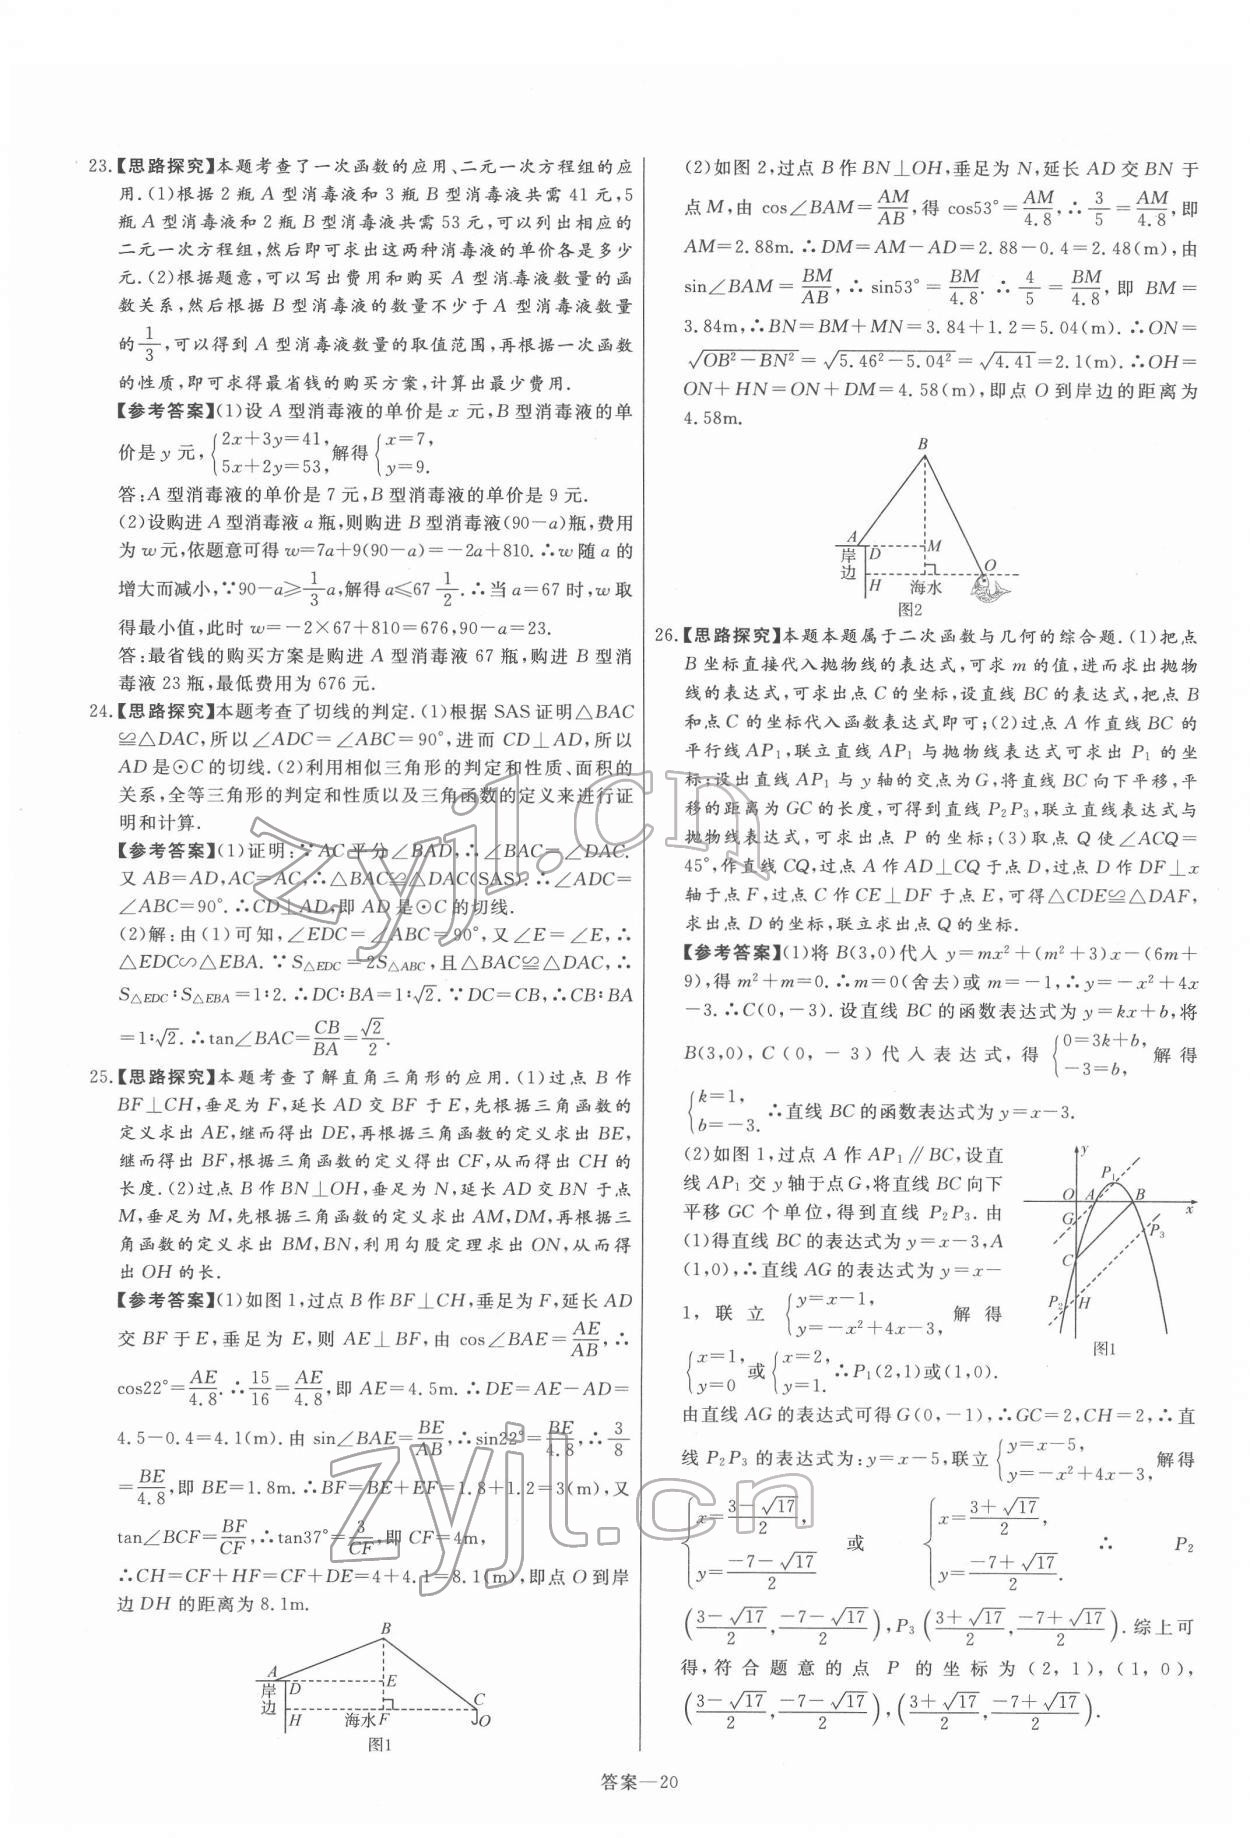 23.【思路探究】本题考查了一次函数的应用、二元一次方程组的应
用.(1)根据 2 瓶 A 型消毒液和 3 瓶 B 型消毒液共需 41 元,5
瓶 A 型消毒液和 2 瓶 B 型消毒液共需 53 元,可以列出相应的
二元一次方程组,然后即可求出这两种消毒液的单价各是多少
元.(2)根据题意,可以写出费用和购买 A 型消毒液数量的函
数关系,然后根据 B 型消毒液的数量不少于 A 型消毒液数量
的 1/3,可以得到 A 型消毒液数量的取值范围,再根据一次函数
的性质,即可求得最省钱的购买方案,计算出最少费用.
【参考答案】(1)设 A 型消毒液的单价是 x 元,B 型消毒液的单
价是 y 元,{2x+3y=41, 5x+2y=53,解得{x=7, y=9.
答:A 型消毒液的单价是 7 元,B 型消毒液的单价是 9 元.
(2)设购进 A 型消毒液 a 瓶,则购进 B 型消毒液(90-a)瓶,费用
为 w 元,依题意可得 w=7a+9(90-a)=-2a+810.∴w 随 a 的
增大而减小,∵90-a≥1/3a,解得 a≤67 1/2.∴当 a=67 时,w 取
得最小值,此时 w=-2×67+810=676,90-a=23.
答:最省钱的购买方案是购进 A 型消毒液 67 瓶,购进 B 型消
毒液 23 瓶,最低费用为 676 元.
24.【思路探究】本题考查了切线的判定.(1)根据 SAS 证明△BAC
≌△DAC,所以∠ADC=∠ABC=90°,进而 CD⊥AD,所以
AD 是⊙C 的切线.(2)利用相似三角形的判定和性质、面积的
关系,全等三角形的判定和性质以及三角函数的定义来进行证
明和计算.
【参考答案】(1)证明:∵AC 平分∠BAD,∴∠BAC=∠DAC.
又 AB=AD,AC=AC,∴△BAC≌△DAC(SAS).∴∠ADC=
∠ABC=90°.∴CD⊥AD,即 AD 是⊙C 的切线.
(2)解:由(1)可知,∠EDC=∠ABC=90°,又∠E=∠E,∴
△EDC∽△EBA.∵S△EDC=2S△ABC,且△BAC≌△DAC,∴
S△EDC∶S△EBA=1∶2.∴DC∶BA=1∶√2.∵DC=CB,∴CB∶BA
=1∶√2.∴tan∠BAC=CB/BA=√2/2.
25.【思路探究】本题考查了解直角三角形的应用.(1)过点 B 作
BF⊥CH,垂足为 F,延长 AD 交 BF 于 E,先根据三角函数的
定义求出 AE,继而得出 DE,再根据三角函数的定义求出 BE,
继而得出 BF,根据三角函数的定义得出 CF,从而得出 CH 的
长度.(2)过点 B 作 BN⊥OH,垂足为 N,延长 AD 交 BN 于点
M,垂足为 M,先根据三角函数的定义求出 AM,DM,再根据三
角函数的定义求出 BM,BN,利用勾股定理求出 ON,从而得
出 OH 的长.
【参考答案】(1)如图 1,过点 B 作 BF⊥CH,垂足为 F,延长 AD
交 BF 于 E,垂足为 E,则 AE⊥BF,由 cos∠BAE=AE/AB,∴
cos22°=AE/4.8.∴15/16=AE/4.8,即 AE=4.5m.∴DE=AE-AD=
4.5-0.4=4.1(m).由 sin∠BAE=BE/AB,∴sin22°=BE/4.8,∴3/8
=BE/4.8,即 BE=1.8m.∴BF=BE+EF=1.8+1.2=3(m),又
tan∠BCF=BF/CF,∴tan37°=3/CF,即 CF=4m,
∴CH=CF+HF=CF+DE=4+4.1=8.1(m),即点 O 到岸
边 DH 的距离为 8.1m.
B
A
岸 D E
边
H 海水 F C
O
图1
(2)如图 2,过点 B 作 BN⊥OH,垂足为 N,延长 AD 交 BN 于
点 M,由 cos∠BAM=AM/AB,得 cos53°=AM/4.8,∴3/5=AM/4.8,即
AM=2.88m.∴DM=AM-AD=2.88-0.4=2.48(m),由
sin∠BAM=BM/AB,∴sin53°=BM/4.8.∴4/5=BM/4.8,即 BM=
3.84m,∴BN=BM+MN=3.84+1.2=5.04(m).∴ON=
√OB²-BN²=√5.46²-5.04²=√4.41=2.1(m).∴OH=
ON+HN=ON+DM=4.58(m),即点 O 到岸边的距离为
4.58m.
B
A
岸 D M
边
H 海水 O
图2
26.【思路探究】本题本题属于二次函数与几何的综合题.(1)把点
B 坐标直接代入抛物线的表达式,可求 m 的值,进而求出抛物
线的表达式,可求出点 C 的坐标,设直线 BC 的表达式,把点 B
和点 C 的坐标代入函数表达式即可;(2)过点 A 作直线 BC 的
平行线 AP₁,联立直线 AP₁ 与抛物线表达式可求出 P₁ 的坐
标;设出直线 AP₁ 与 y 轴的交点为 G,将直线 BC 向下平移,平
移的距离为 GC 的长度,可得到直线 P₂P₃,联立直线表达式与
抛物线表达式,可求出点 P 的坐标;(3)取点 Q 使∠ACQ=
45°,作直线 CQ,过点 A 作 AD⊥CQ 于点 D,过点 D 作 DF⊥x
轴于点 F,过点 C 作 CE⊥DF 于点 E,可得△CDE≌△DAF,
求出点 D 的坐标,联立求出点 Q 的坐标.
【参考答案】(1)将 B(3,0)代入 y=mx²+(m²+3)x-(6m+
9),得 m²+m=0.∴m=0(舍去)或 m=-1,∴y=-x²+4x
-3.∴C(0,-3).设直线 BC 的函数表达式为 y=kx+b,将
B(3,0),C(0,-3)代入表达式,得{0=3k+b, -3=b,解得
{k=1, b=-3.∴直线 BC 的函数表达式为 y=x-3.
(2)如图 1,过点 A 作 AP₁∥BC,设直
线 AP₁ 交 y 轴于点 G,将直线 BC 向下
平移 GC 个单位,得到直线 P₂P₃.由
(1)得直线 BC 的表达式为 y=x-3,A
(1,0),∴直线 AG 的表达式为 y=x-
1,联立{y=x-1, y=-x²+4x-3,解得
{x=1, y=0或{x=2, y=1.∴P₁(2,1)或(1,0).
y
P₁
O A B x
G
P₃
C
P₂ H
图1
由直线 AG 的表达式可得 G(0,-1),∴GC=2,CH=2,∴直
线 P₂P₃ 的表达式为:y=x-5,联立{y=x-5, y=-x²+4x-3,解得
{x=(3-√17)/2, y=(-7-√17)/2 或 {x=(3+√17)/2, y=(-7+√17)/2. ∴ P₂
((3-√17)/2,(-7-√17)/2),P₃((3+√17)/2,(-7+√17)/2).综上可
得,符合题意的点 P 的坐标为(2,1),(1,0),
((3-√17)/2,(-7-√17)/2),((3+√17)/2,(-7+√17)/2).
zyjl.cn
zyjl.cn
答案—20